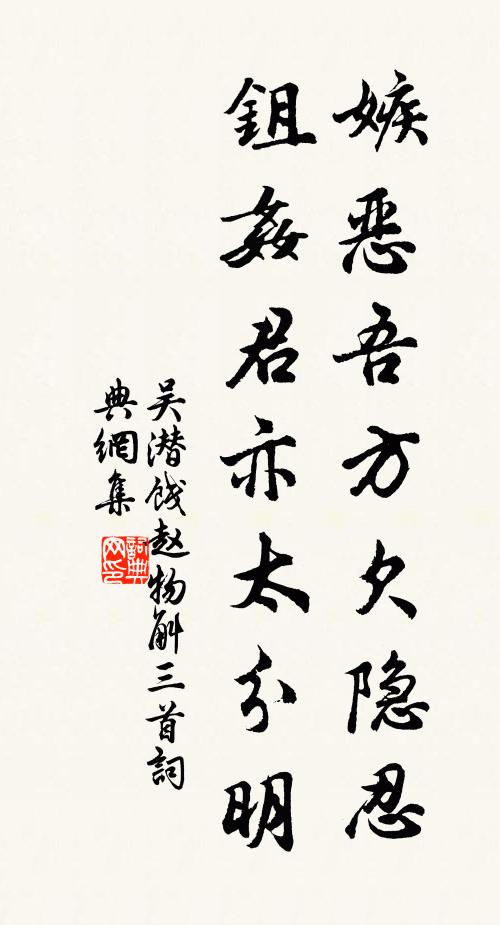 嫉恶吾方欠隐忍
鉏姦君亦太分明
吴潜饯赵物斛三首詞
典網集
詞典网印